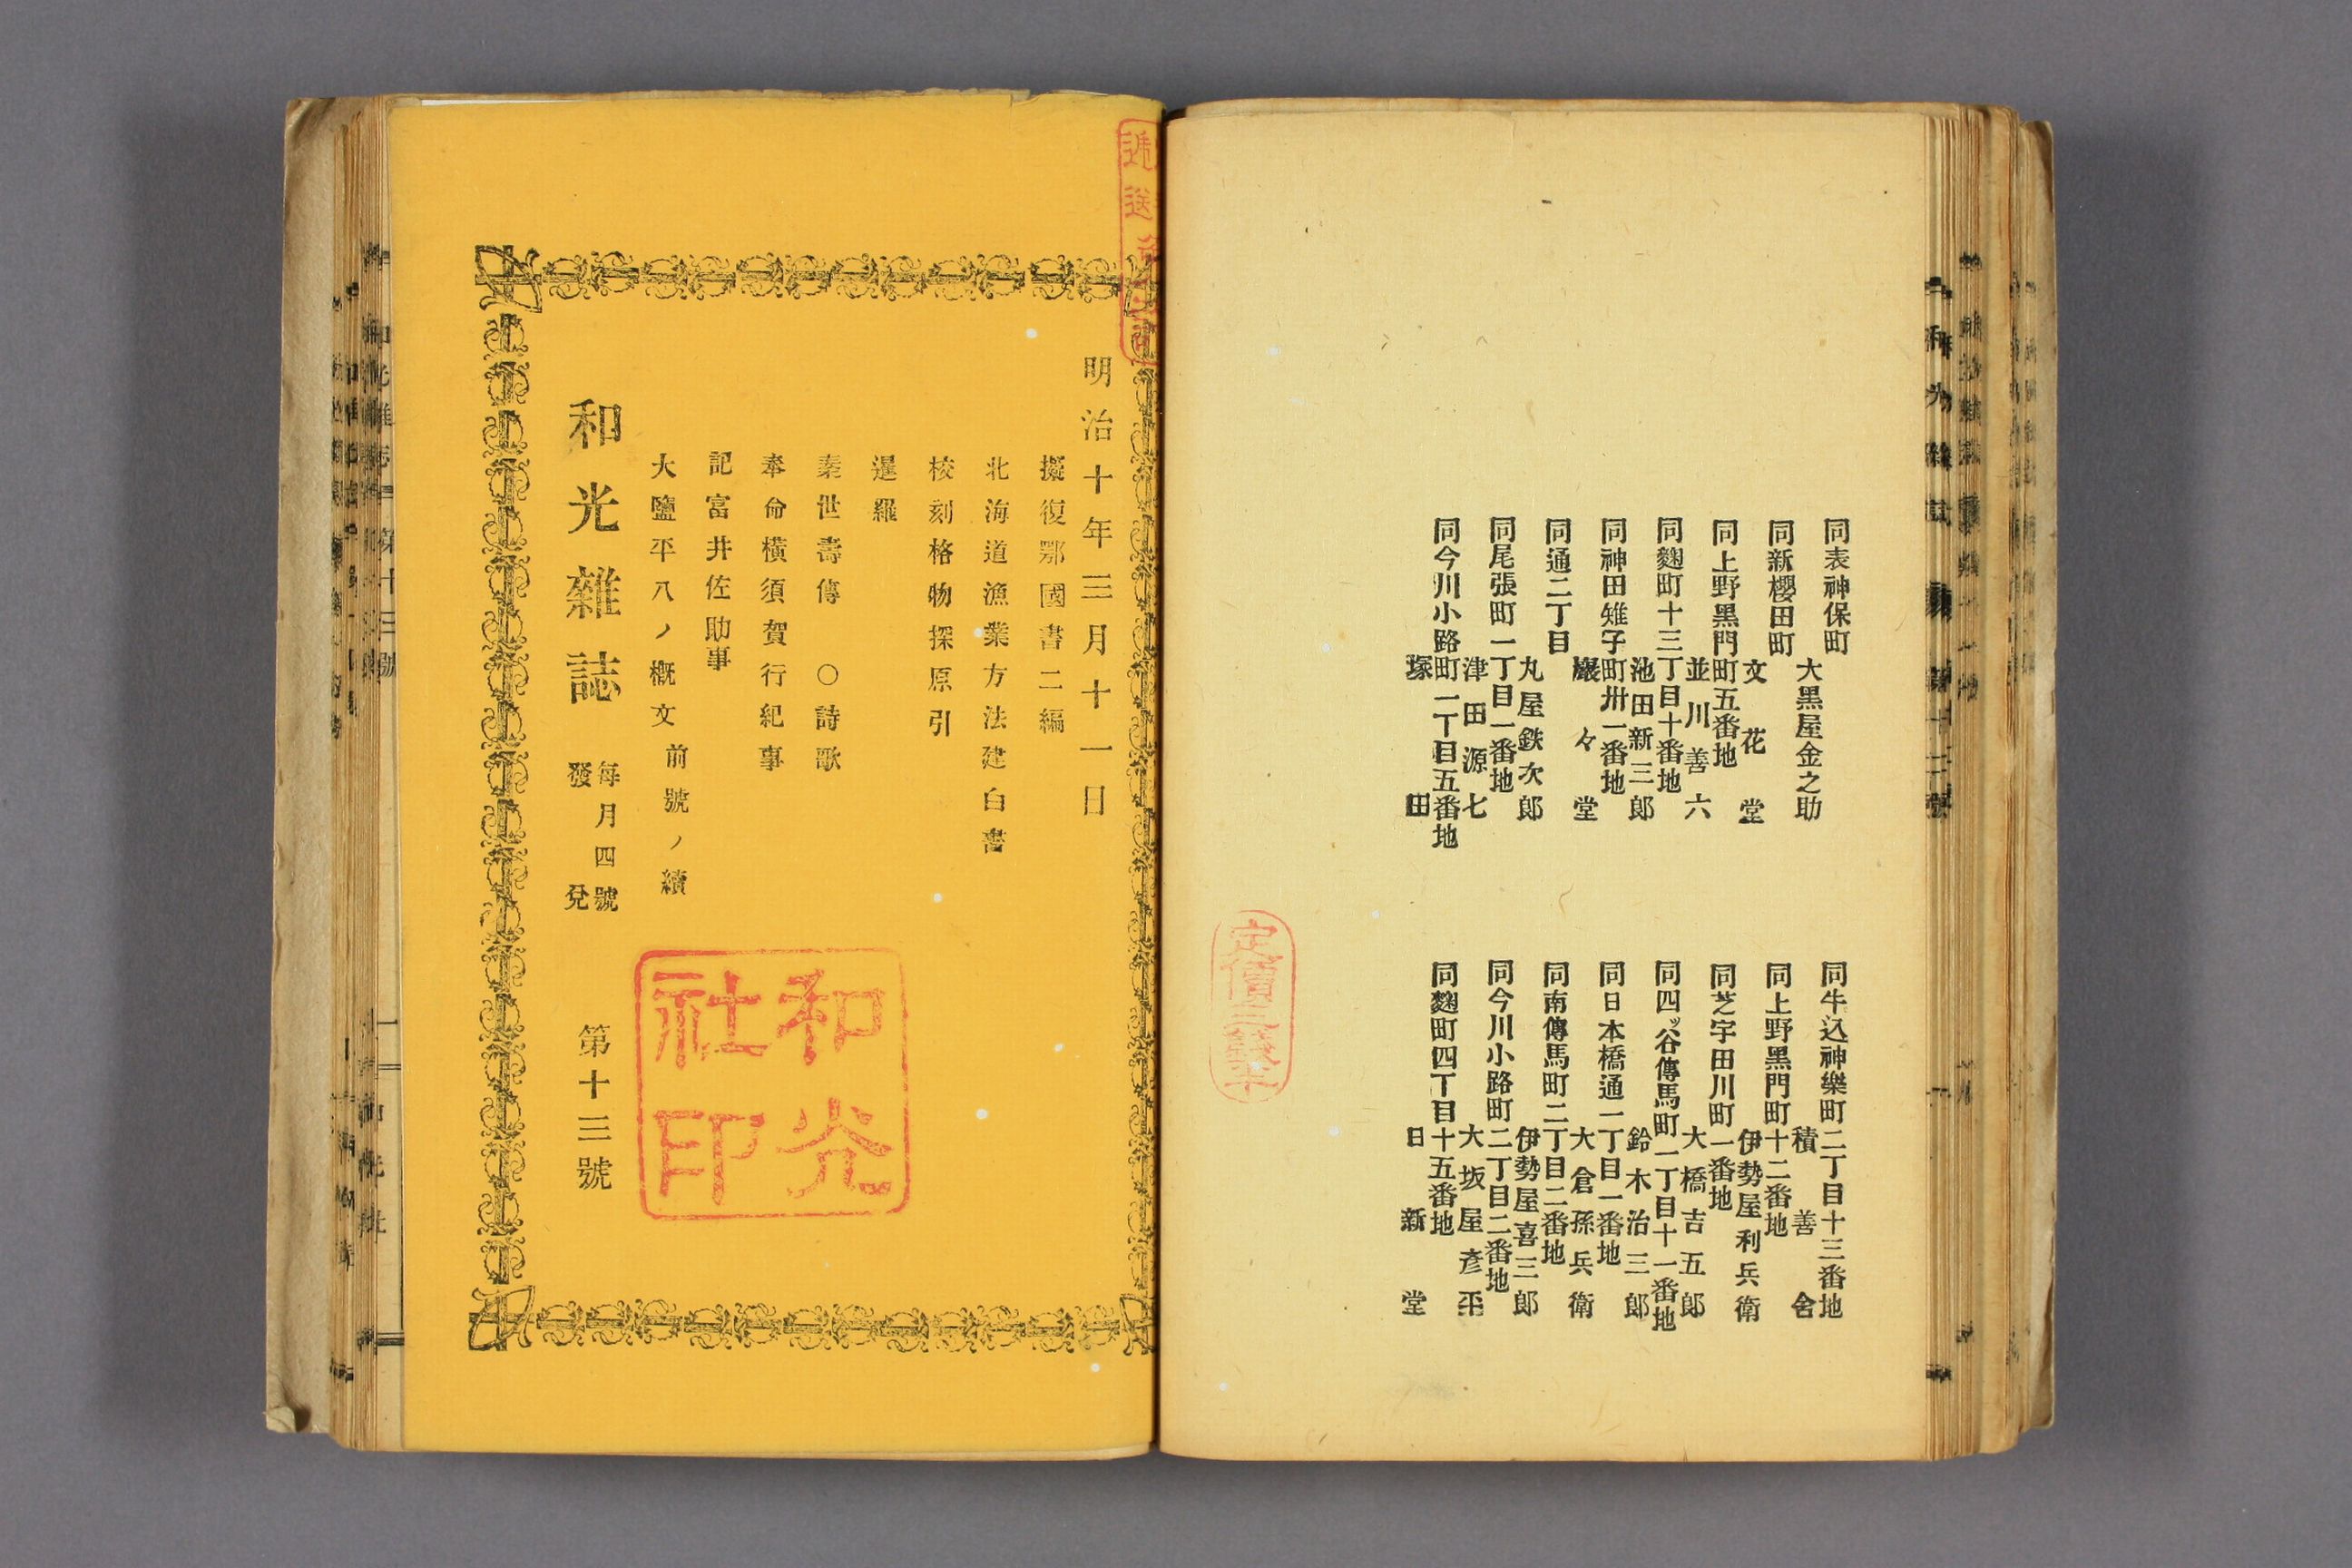 同表神保町
大黒屋金之助
同新櫻田町
文花堂
同上野黒門町五番地
並川善六
同麴町十三丁目十番地
池田新三郎
同神田雉子町卅一番地
巖々堂
同通二丁目
丸屋鉄次郎
同尾張町一丁目一番地
津田源七
同今川小路町一丁目五番地
塚田
同牛込神樂町二丁目十三番地
積善舍
同上野黒門町十二番地
伊勢屋利兵衛
同芝宇田川町一番地
大橋吉五郎
同四ッ谷傳馬町一丁目十一番地
鈴木治三郎
同日本橋通一丁目一番地
大倉孫兵衛
同南傳馬町二丁目二番地
伊勢屋喜三郎
同今川小路町二丁目二番地
大坂屋彥平
同麴町四丁目十五番地
日新堂
定價三錢半
遞送
明治十年三月十一日
擬復鄂國書二編
北海道漁業方法建白書
校刻格物探原引
暹羅
秦世壽傳 ○詩歌
奉命橫須賀行紀事
記富井佐助事
大鹽平八ノ概文 前號ノ續
和光雜誌 每月四號發兌 第十三號
和光社印